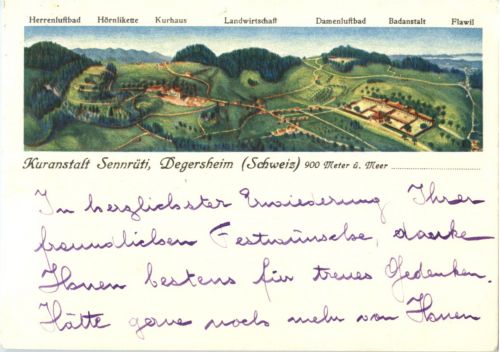 Herrenluftbad Hörnlikette Kurhaus Landwirtschaft Damenluftbad Badanstalt Flawil
Kuranstalt Sennrüti, Degersheim (Schweiz) 900 Meter ü. Meer
In herzlichster Erwiederung Ihrer
freundlichen Festwünsche, danke
Ihnen bestens für treues Gedenken.
Hätte gerne noch mehr von Ihnen